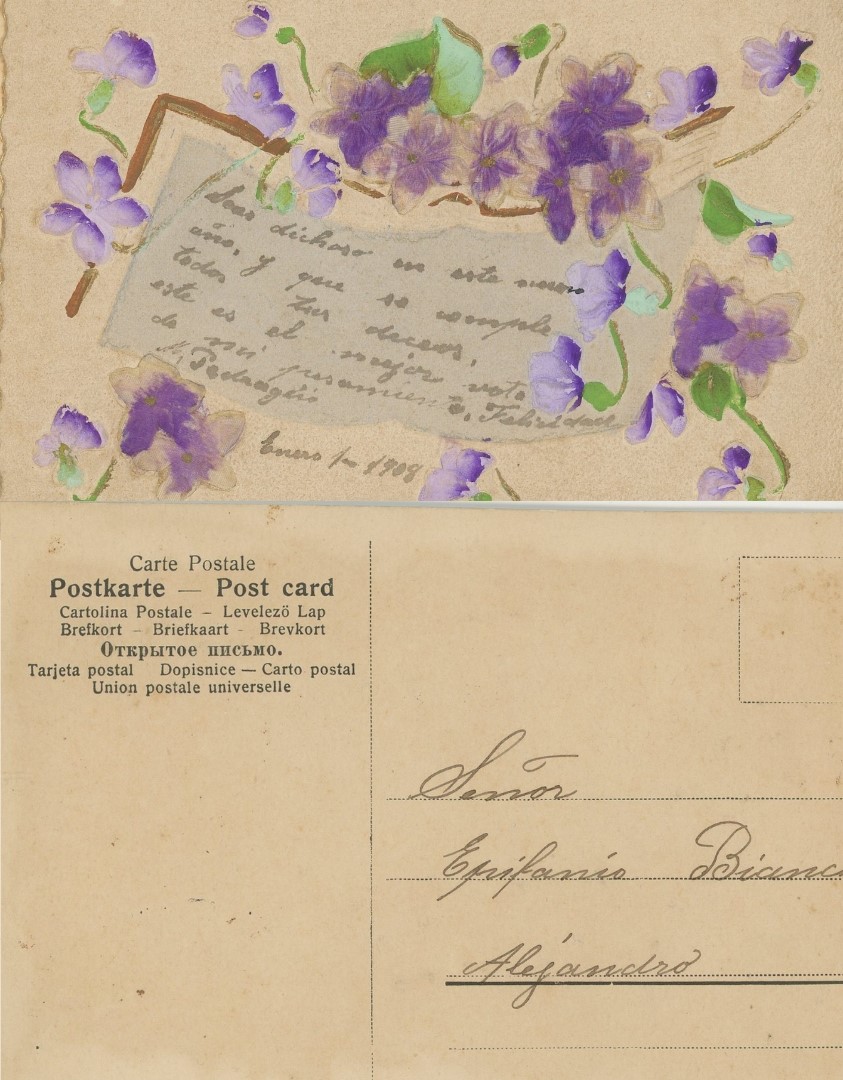 Seas dichoso en este nuevo
año, y que se cumplan
todos tus deceos,
este es el mejor voto
de mi pensamiento, Felicidades
M. Pedragós
Enero 1º 1908
Carte Postale
Postkarte — Post card
Cartolina Postale – Levelező Lap
Brefkort – Briefkaart - Brevkort
Открытое письмо.
Tarjeta postal Dopisnice — Carto postal
Union postale universelle
Señor
Epifanio Bianco
Alejandro